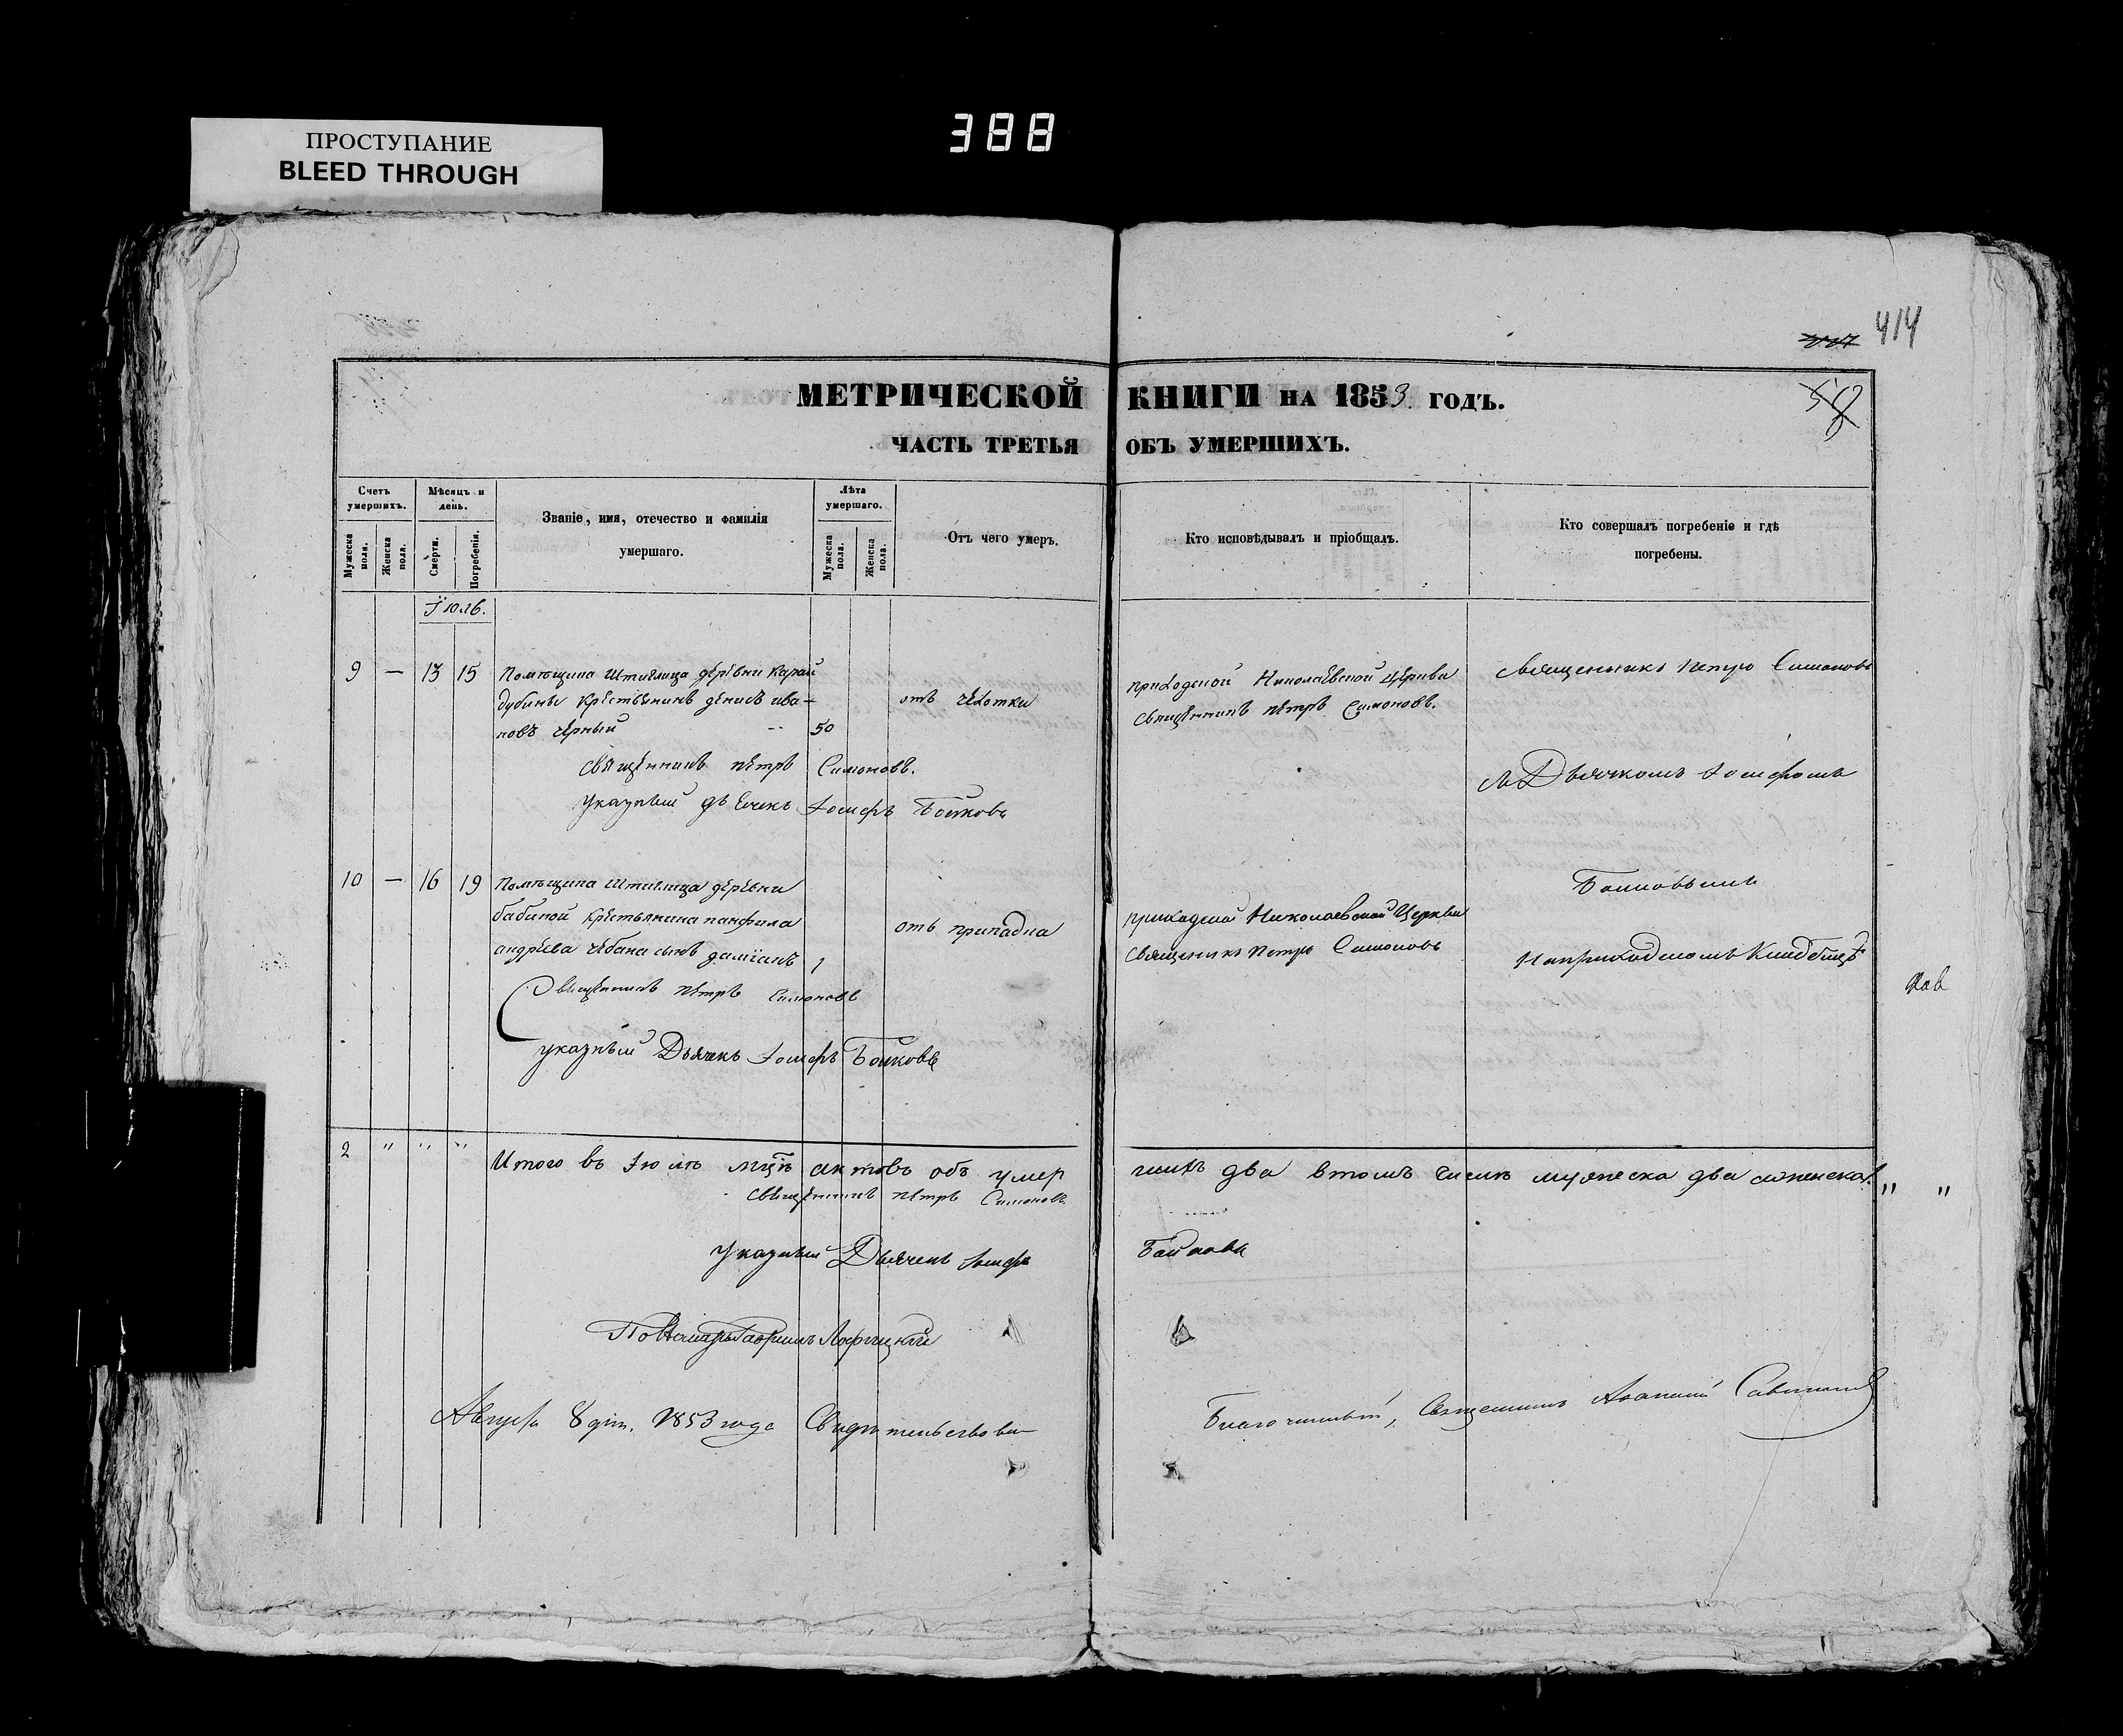 ПРОСТУПАНИЕ
BLEED THROUGH
388
414
МЕТРИЧЕСКОЙ КНИГИ НА 1853. ГОДЪ.
ЧАСТЬ ТРЕТЬЯ ОБЪ УМЕРШИХЪ.
Счетъ умершихъ.
Мужеска пола.
Женска пола.
Мѣсяцъ и день.
Смерти.
Погребенія.
Званіе, имя, отечество и фамилія
умершаго.
Лѣта умершаго.
Мужеска пола.
Женска пола.
Отъ чего умеръ.
Кто исповѣдывалъ и пріобщалъ.
Кто совершалъ погребеніе и гдѣ
погребены.
Іюль.
9 — 13 15 Помѣщика Штиглица деревни Карай
дубины крестьянинъ денисъ ива-
новъ черный 50
отъ чехотки
приходской Николаевской церкви
священникъ петръ Симоновъ.
Священникъ Петръ Симоновъ
съ Дьячкомъ Іосифомъ
священникъ петръ Симоновъ.
Указный дьячекъ Іосифъ Бойковъ
10 — 16 19 Помѣщика Штиглица деревни
бабиной крестьянина панфила
андреева чебана сынъ даміанъ 1
отъ припадка
приходской Николаевской Церкви
священникъ Петръ Симоновъ
Бойковымъ
На приходскомъ Кладбищѣ
Священникъ петръ Симоновъ
указный Дьячекъ Іосифъ Бойковъ
2 " " " Итого въ Іюлѣ мцѣ актовъ объ умер
шихъ два втомъ числѣ мужеска два аженска " "
священникъ петръ Симоновъ
Указный Дьячекъ Іосифъ Бойковъ
Августа 8 дня. 1853 года Свидѣтельствовалъ
Благочинный, Священникъ